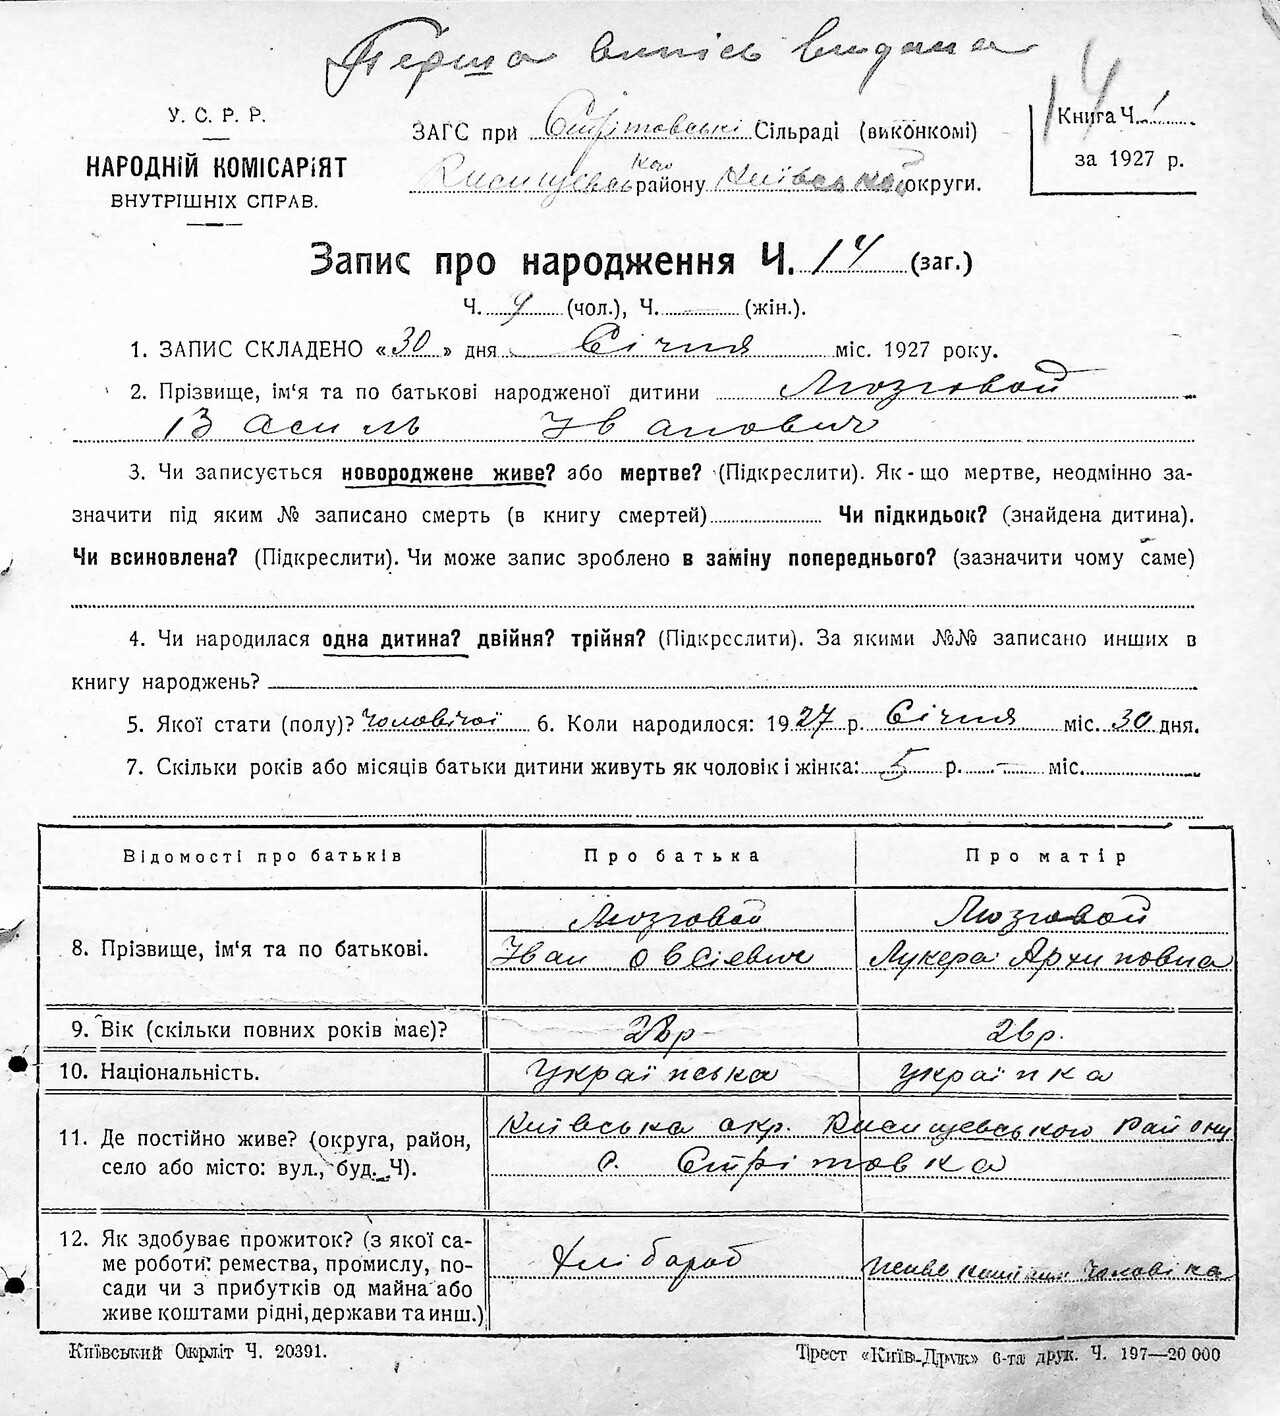 Перша випись видана
14
У. С. Р. Р.
НАРОДНІЙ КОМІСАРІЯТ
ВНУТРІШНІХ СПРАВ.
ЗАГС при Стрітовські Сільраді (виконкомі)
району Київської округи.
Книга Ч. 1
за 1927 р.
Запис про народження Ч. 14 (заг.)
Ч. 9 (чол.), Ч. — (жін.).
1. ЗАПИС СКЛАДЕНО «30» дня Січня міс. 1927 року.
2. Прізвище, ім'я та по батькові народженої дитини Мозговой
Василь Іванович
3. Чи записується новороджене живе? або мертве? (Підкреслити). Як-що мертве, неодмінно за-
значити під яким № записано смерть (в книгу смертей) Чи підкидьок? (знайдена дитина).
Чи всиновлена? (Підкреслити). Чи може запис зроблено в заміну попереднього? (зазначити чому саме)
4. Чи народилася одна дитина? двійня? трійня? (Підкреслити). За якими №№ записано инших в
книгу народжень?
5. Якої стати (полу)? Чоловічої 6. Коли народилося: 1927 р. Січня міс. 30 дня.
7. Скільки років або місяців батьки дитини живуть як чоловік і жінка: 5 р. — міс.
Відомості про батьків Про батька Про матір
8. Прізвище, ім'я та по батькові. Мозговой Мозговой
Іван Овсієвич Лукера Архиповна
9. Вік (скільки повних років має)? 28р 26р.
10. Національність. Українська українка
11. Де постійно живе? (округа, район, Київська окр. Району
село або місто: вул., буд. Ч). с. Стрітовка
12. Як здобуває прожиток? (з якої са- Хлібороб живе коштами чоловіка
ме роботи: ремества, промислу, по-
сади чи з прибутків од майна або
живе коштами рідні, держави та инш.)
Київський Окрліт Ч. 20391. Трест «Київ-Друк» 6-та друк. Ч. 197—20 000